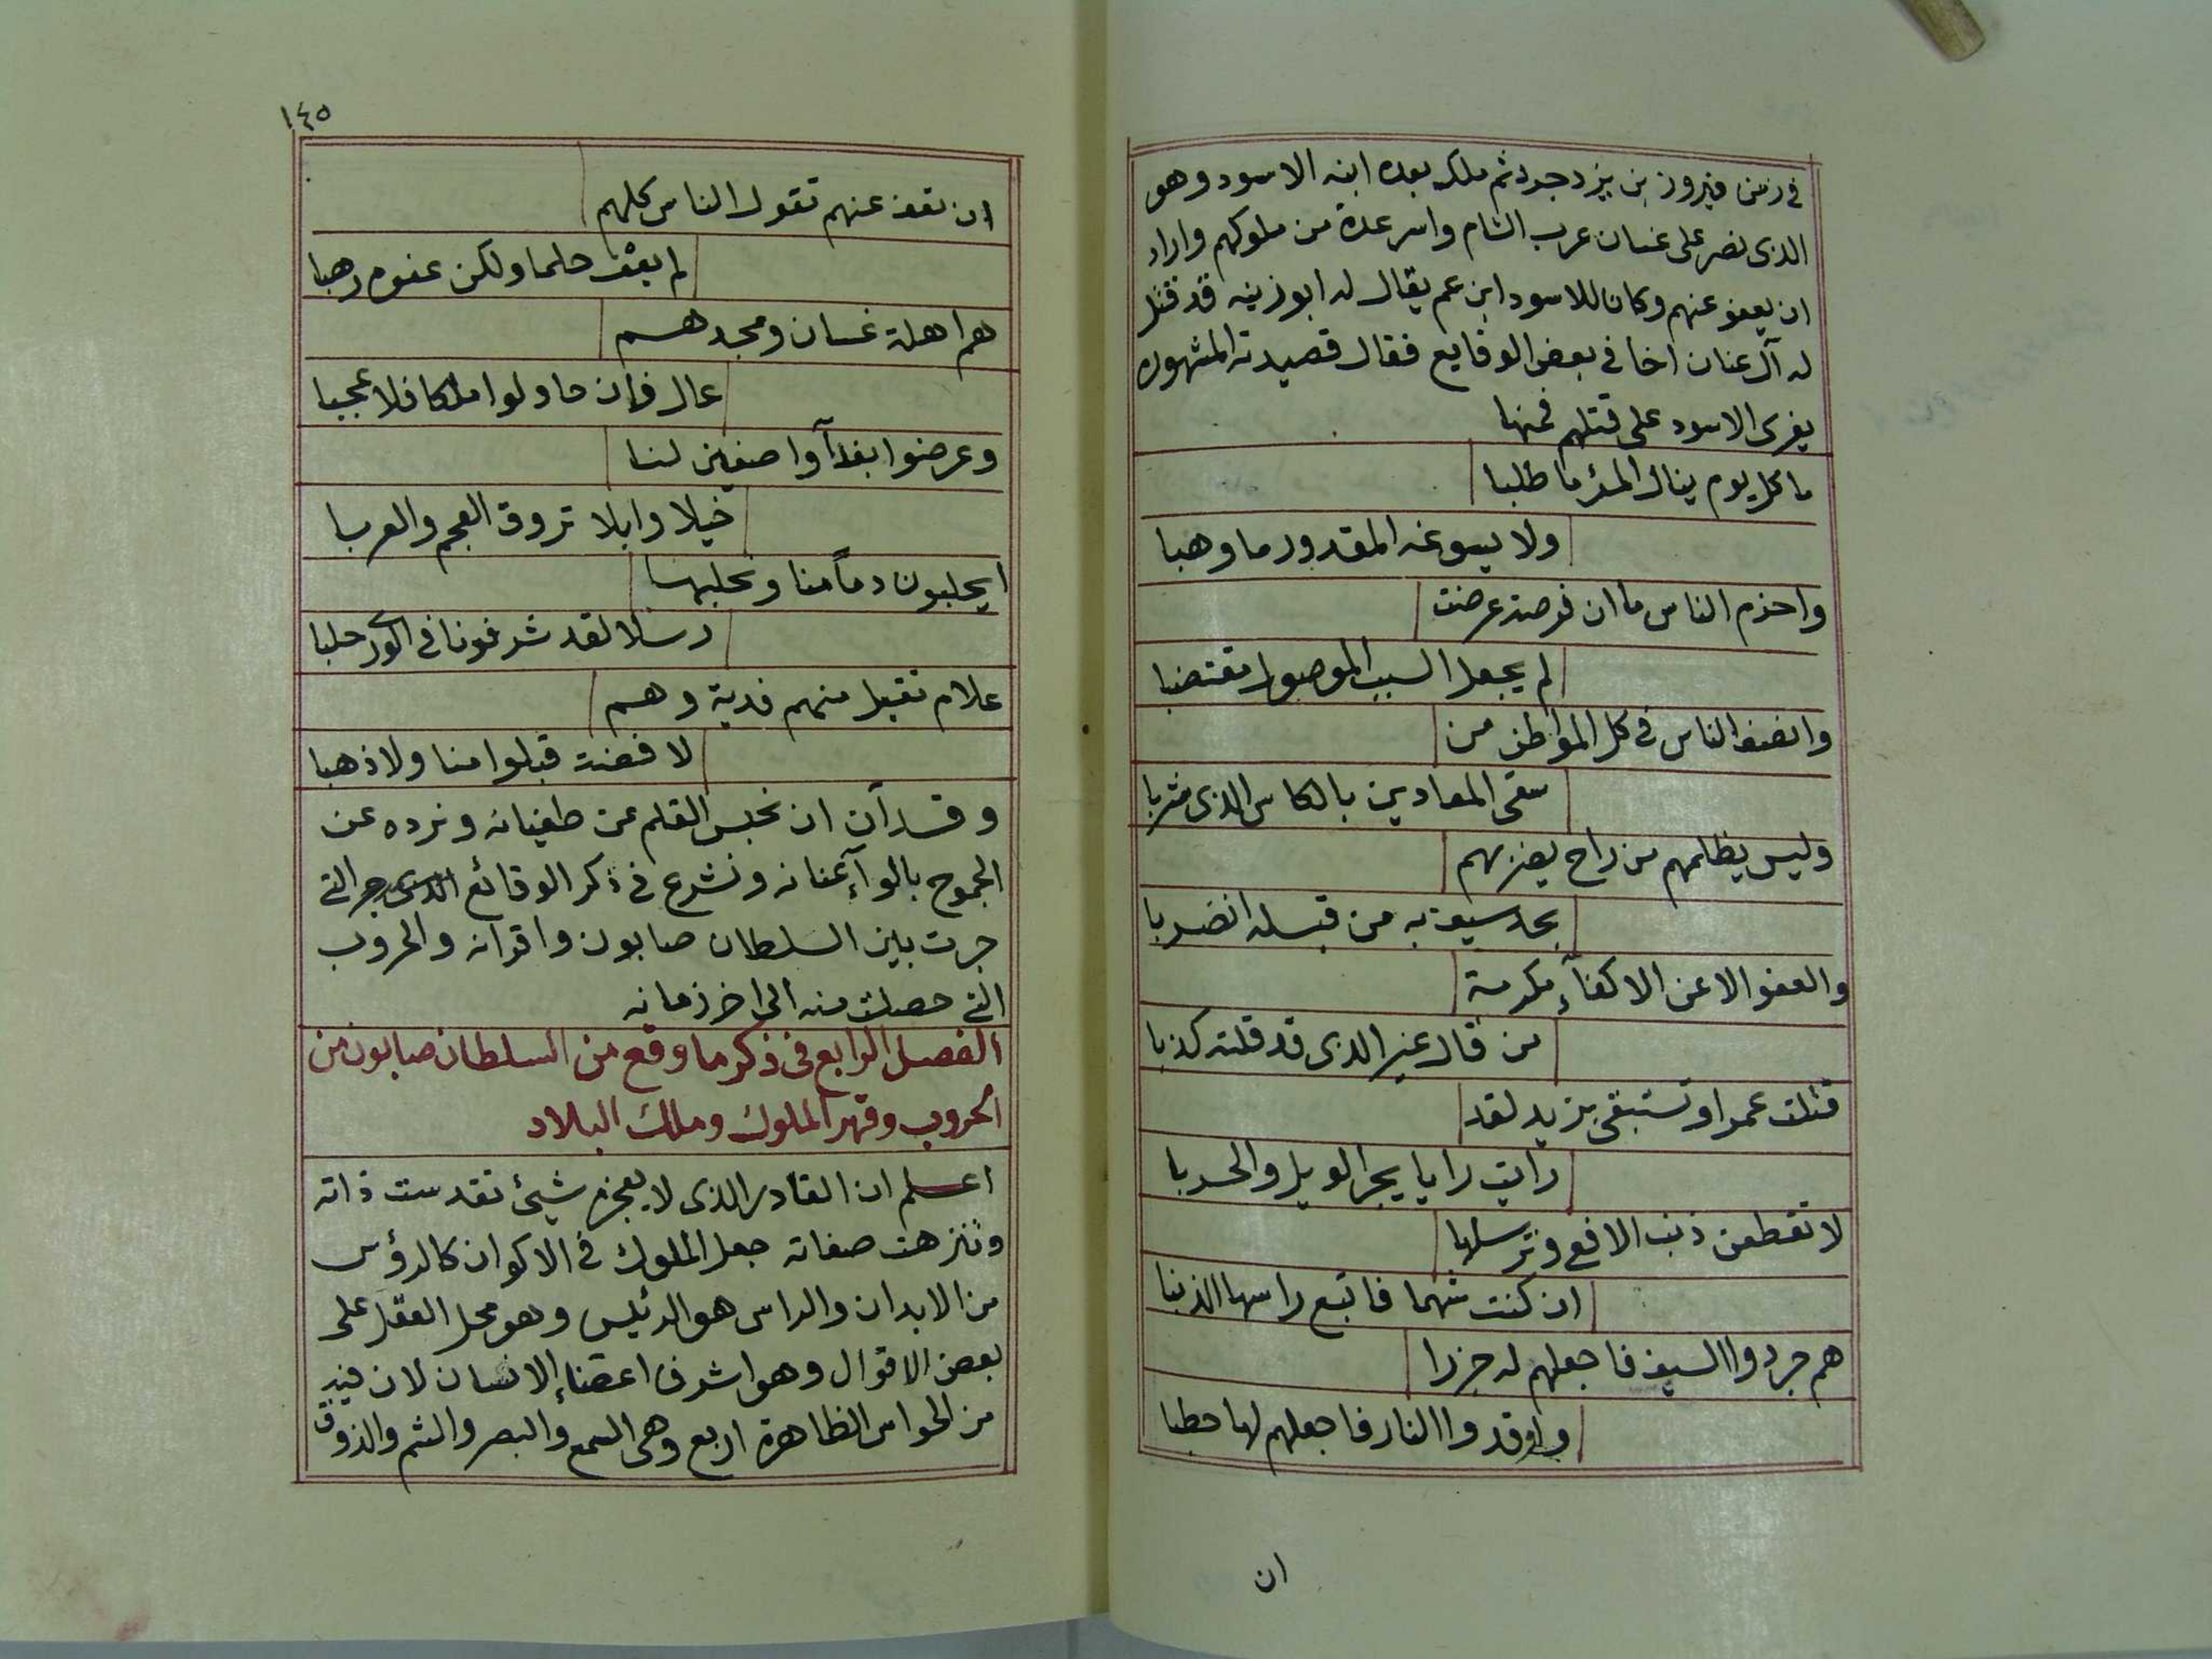 في زمن فيروز بن يزدجرد ثم ملك بعده ابنه الاسود وهو
الذى نصر على غسان عرب الشام واسر عدة من ملوكهم واراد
ان يعفو عنهم وكان للاسود ابن عم يقال له ابو زينه قد قتل
له آل غسان اخا في بعض الوقايع فقال قصيدته المشهوره
يغرى الاسود على قتلهم فمنها
ما كل يوم ينال المرء ما طلبا
ولا يسوغه المقدور ما وهبا
واحزم الناس ما ان فرصة عرضت
لم يجعل السبب الموصول مقتضبا
وانصف الناس في كل المواطن من
سقى المعادين بالكاس الذى شربا
وليس يظلمهم من راح يضربهم
بحد سيف به من قبله انضربا
والعفو الا عن الاكفآء مكرمة
من قال غير الذى قد قلته كذبا
قتلت عمرا وتستبقى يزيد لقد
رايت رايا يجر الويل والحربا
لا تقطعن ذنب الافعى وترسلها
ان كنت شهما فاتبع راسها الذنبا
هم جردوا السيف فاجعلهم له جزرا
واوقدوا النار فاجعلهم لها حطبا
ان
١٤٥
ان تعف عنهم تقول الناس كلهم
لم يعف حلما ولكن عفوه رهبا
هم اهلة غسان ومجدهم
عال فان حاولوا ملكا فلا عجبا
وعرضوا بفدآء واصفين لنا
خيلا وابلا تروق العجم والعربا
ايحلبون دما منا ونحلبها
رسلا لقد شرفونا في الورى حلبا
علام تقبل منهم فدية وهم
لا فضة قبلوا منا ولا ذهبا
وقد آن ان نحبس القلم عن طغيانه ونرده عن
الجموح بالوآء عنانه ونشرع في ذكر الوقائع التى
جرت بين السلطان صابون واقرانه والحروب
التى حصلت منه الى اخر زمانه
الفصل الرابع فى ذكر ما وقع من السلطان صابون من
الحروب وقهر الملوك وملك البلاد
اعلم ان القادر الذى لا يعجزه شيئ تقدست ذاته
وتنزهت صفاته جعل الملوك في الاكوان كالرؤس
من الابدان والراس هو الرئيس وهو محل العقل على
بعض الاقوال وهو اشرف اعضاء الانسان لان فيه
من الحواس الظاهرة اربع وهى السمع والبصر والشم والذوق